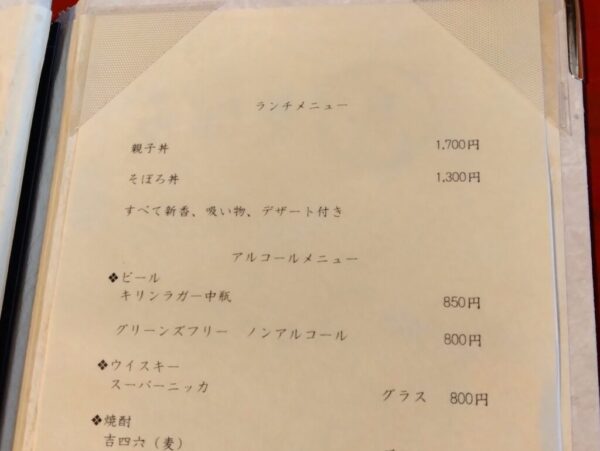 ランチメニュー
親子丼 1,700円
そぼろ丼 1,300円
すべて新香、吸い物、デザート付き
アルコールメニュー
❖ビール
キリンラガー中瓶 850円
グリーンズフリー ノンアルコール 800円
❖ウイスキー
スーパーニッカ グラス 800円
❖焼酎
吉四六（麦）